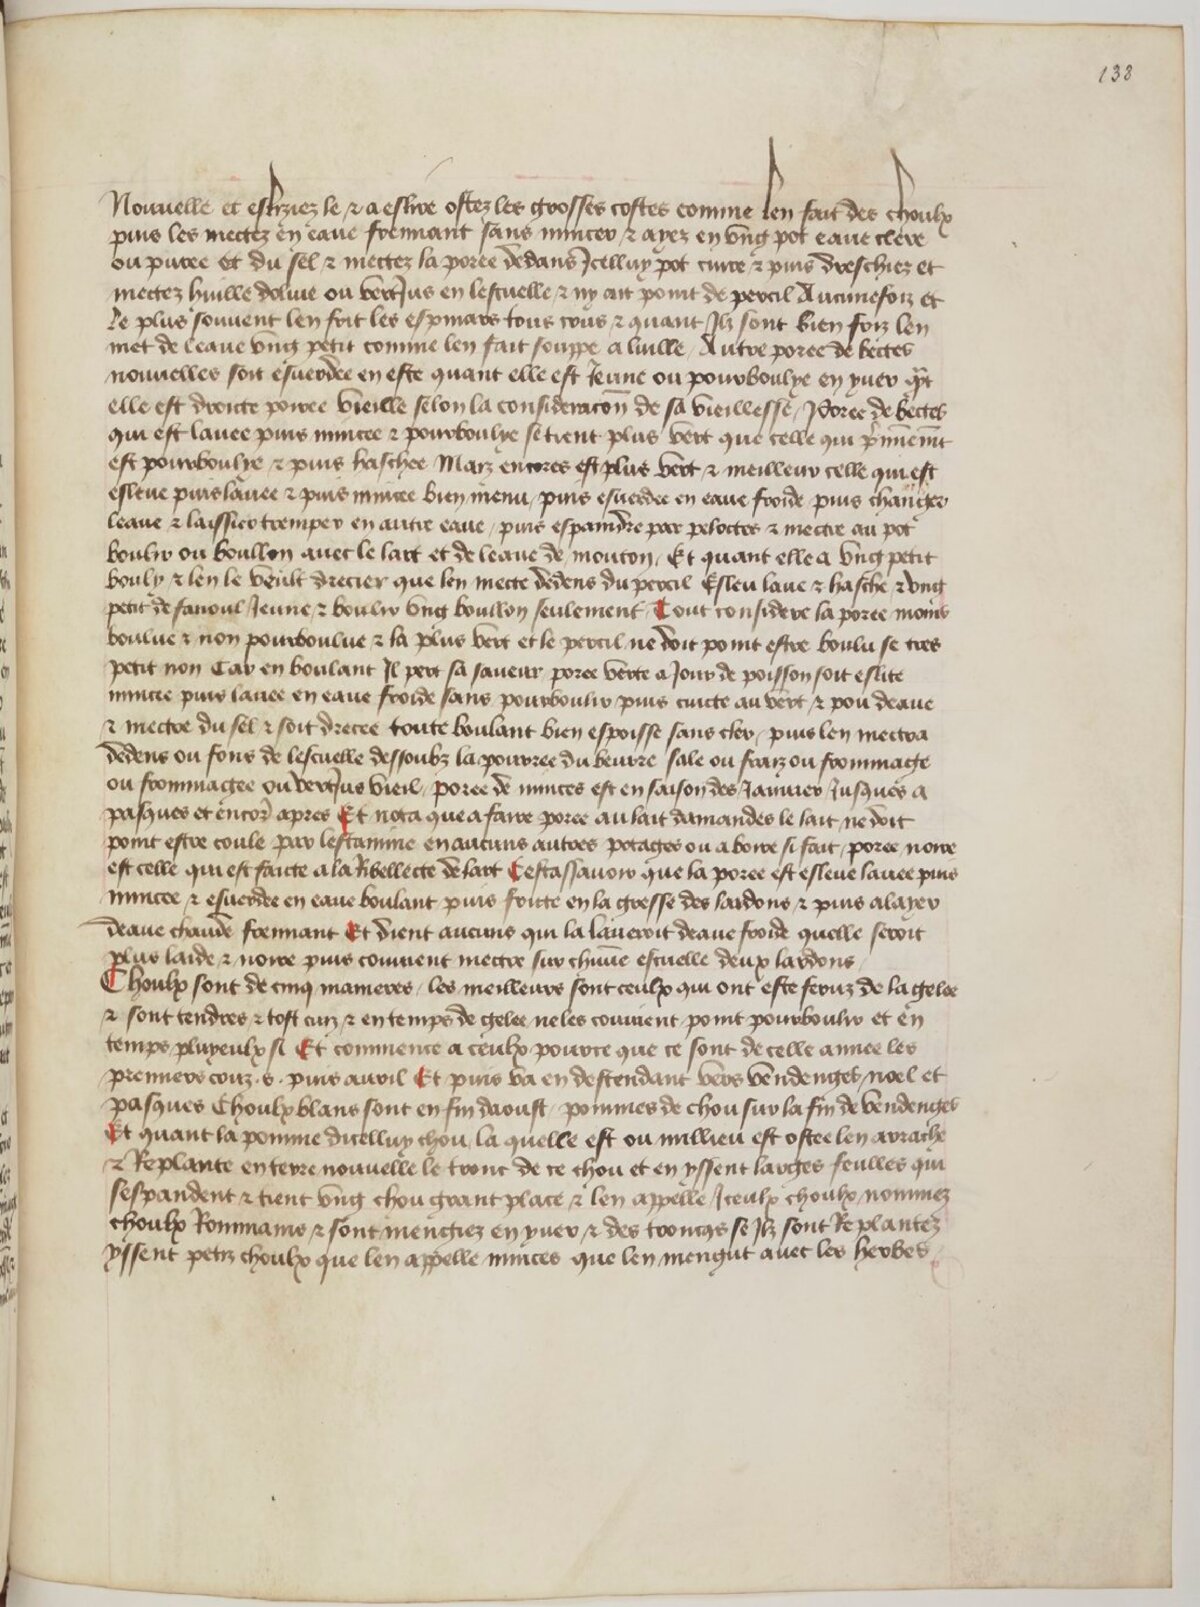 138
Nouuelle et esliziez le ⁊ a eslire ostez les grosses costes comme len fait des choulx
puis les mectez en eaue fremiant sans mincer ⁊ ayez en vng pot eaue clere
ou puree et du sel ⁊ mectez la poree dedans Jcelluy pot cuire ⁊ puis dreschiez et
mectez huille doliue ou vertJus en lescuelle ⁊ ny ait point de percil Aucuneffoiz et
le plus souuent len frit les espinars tous crus ⁊ quant Jlz sont bien friz len
met de leaue vng petit comme len fait souppe a luille / Autre poree de bectes
nouuelles soit esuerdee en este quant elle est Jeune ou pourboulye en yuer qñt
elle est droicte poree vieille selon la consideracon de sa vieillesse / Poree de bectes
qui est lauee puis mincee ⁊ pourboulye se tient plus vert que celle qui p̃miem̃t
est pourboulye ⁊ puis haschee Maiz encores est plus vert ⁊ meilleur celle qui est
esleue puis lauee ⁊ puis mincee bien menu / puis esuerdee en eaue froide puis changer
leaue ⁊ laissier tremper en autre eaue / puis espraindre par peloctes ⁊ mectre au pot
boulir ou boullon auec le lart et de leaue de mouton / Et quant elle a vng petit
bouly ⁊ len le veult drecier que len mecte dedens du percil Esleu laue ⁊ hasche ⁊ vng
petit de fanoul Jeune ⁊ boulir vng boullon seulement / Tout considere la poree moins
boulue ⁊ non pourboulue ⁊ la plus vert et le percil ne doit point estre boulu se tres
petit non Car en boulant Jl pert sa saueur poree verte a Jour de poisson soit eslite
mincee puis lauee en eaue froide sans pourboulir puis cuicte au vert ⁊ pou deaue
⁊ mectre du sel ⁊ soit drecee toute boulant bien espoisse sans cler / puis len mectra
dedens ou fons de lescuelle dessoubz la pourree du beurre sale ou fraiz ou frommage
ou frommagee ou vertJus vieil / poree de minces est en saison des Januier Jusques a
pasques et encor̃ apres Et nota que a faire poree au lait damandes le lait ne doit
point estre coule par lestamine en aucuns autres potages ou a boire si fait / poree noire
est celle qui est faicte a la Ribellecte de lart Cestassauoir que la poree est esleue lauee puis
mincee ⁊ esuerdee en eaue boulant puis fricte en la gresse des lardons ⁊ puis alayer
deaue chaude fremiant Et dient aucuns qui la laueroit deaue froide quelle seroit
plus laide ⁊ noire puis conuient mectre sur chũne escuelle deux lardons /
Choulx sont de cinq manieres / les meilleurs sont ceulx qui ont este feruz de la gelee
⁊ sont tendres ⁊ tost cuiz ⁊ en temps de gelee ne les conuient point pourboulir et en
temps pluyeulx si Et commence a ceulx pource que ce sont de celle annee les
premiers cruz . s . puis auril Et puis va en descendant vers vendenges noel et
pasques Choulx blans sont en fin daoust / pommes de chou sur la fin de vendenges
Et quant la pomme dicelluy chou la quelle est ou millieu est ostee len arrache
⁊ Replante en terre nouuelle le tronc de ce chou et en yssent larges feulles qui
sespandent ⁊ tient vng chou grant place ⁊ len appelle Jceulx choulx nommez
choulx Rommains ⁊ sont mengiez en yuer ⁊ des troncqs se Jlz sont Replantez
yssent petiz choulx que len appelle minces que len mengut auec les herbes